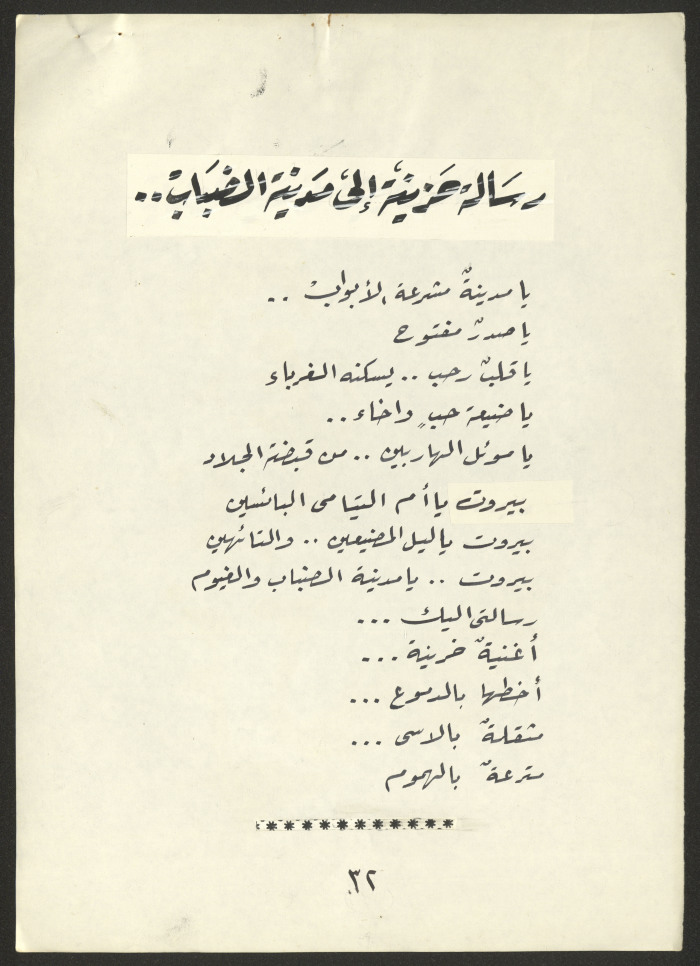 رسَالة حَزينَة إلىَ مَدينَة الضبَابْ..
يا مدينةٌ مشرعة الأبوابْ ..
يا صدرٌ مفتوح
يا قلبٌ رحب .. يسكنه الغرباء
يا ضيعة حبٍ واخاء ..
يا موئل الهاربين .. من قبضة الجلاد
بيروت يا أم اليتامى البائسين
بيروت يا ليل المضيعين .. والتائهين
بيروت .. يا مدينة الضباب والغيوم
رسالتي اليك ...
أغنيةٌ حزينة ...
أخطها بالدموع ...
مثقلةٌ بالاسى ...
مترعةٌ بالهموم
***********
٣٢